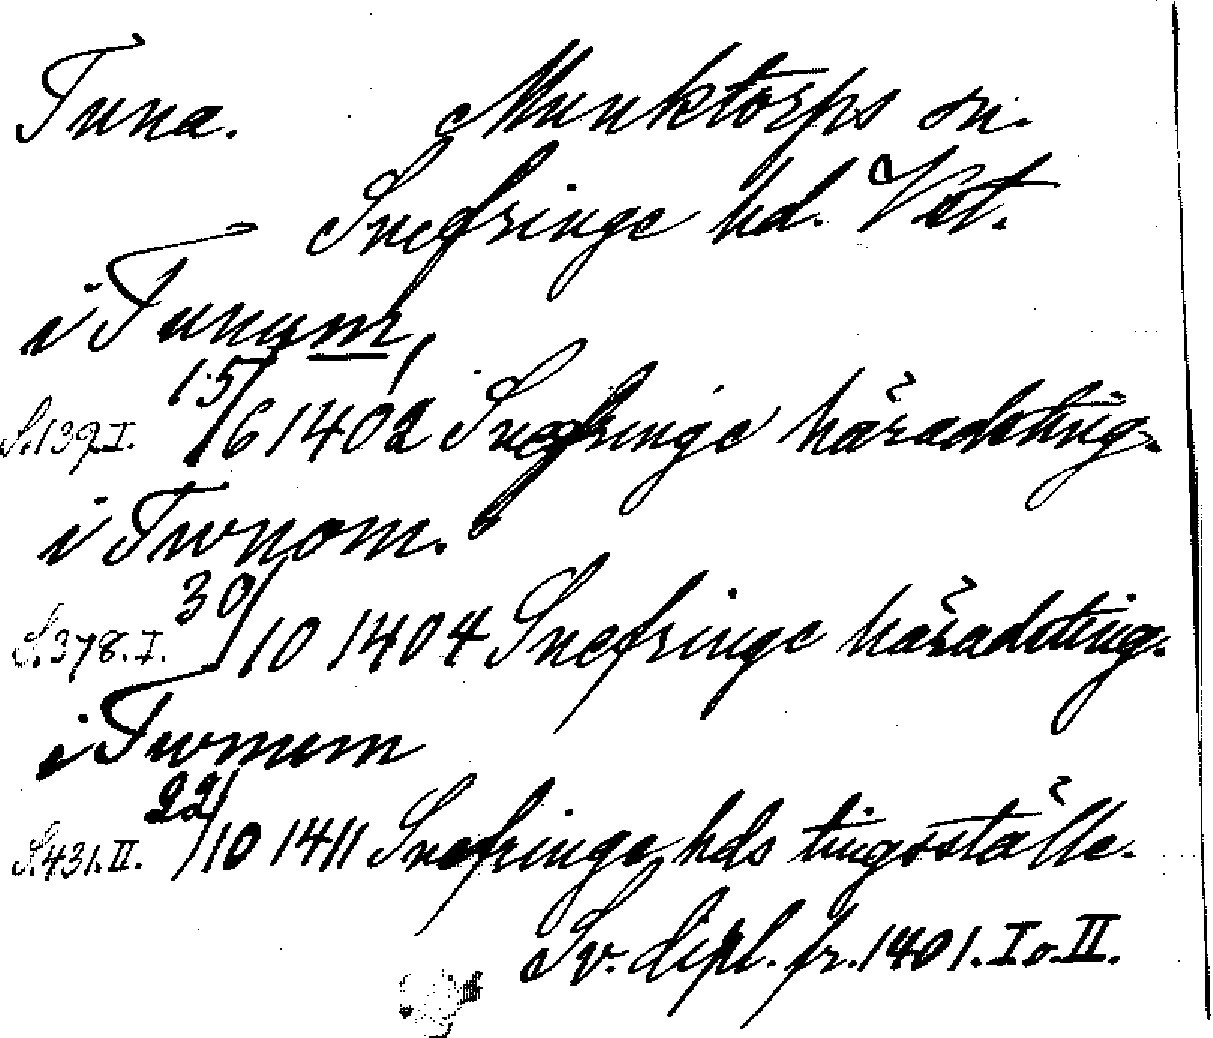 Tuna. Munktorps sn.
Snefringe hd. Vst.
i Tunum,
S. 139. I. 15/6 1402 Snefringe häradsting.
i Twnom.
S. 378. I. 30/10 1404 Snefringe häradsting.
i Twnum
S. 431. II. 22/10 1411 Snefringe hds tingsställe.
Sv. dipl. fr. 1401. I o. II.